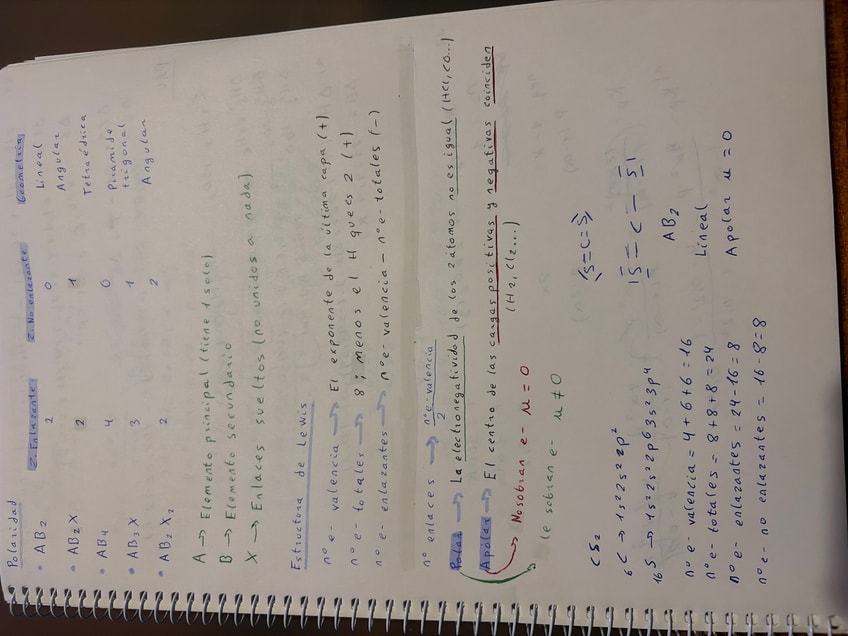 Polaridad
Z. Enlazante Z. No enlazante Geometría
• AB₂ 2 0 Lineal
• AB₂X 2 1 Angular
• AB₄ 4 0 Tetraédrica
• AB₃X 3 1 Piramide trigonal
• AB₂X₂ 2 2 Angular
A → Elemento principal (tiene 1 solo)
B → Elemento secundario
X → Enlaces sueltos (no unidos a nada)
Estructura de Lewis
nº e- valencia → El exponente de la última capa (+)
nº e- totales → 8; menos el H que es 2 (+)
nº e- enlazantes → nº e- valencia - nº e- totales (-)
nº enlaces → nº e- valencia / 2
Polar → La electronegatividad de los 2 átomos no es igual (HCl, CO...)
Apolar → El centro de las cargas positivas y negativas coinciden
→ No sobran e- u = 0 (H₂, Cl₂...)
le sobran e- u ≠ 0
CS₂ ⟨S=C=S⟩
₆C → 1s² 2s² 2p²
₁₆S → 1s² 2s² 2p⁶ 3s² 3p⁴ |S = C — S|
nº e- valencia = 4 + 6 + 6 = 16 AB₂
nº e- totales = 8 + 8 + 8 = 24 Lineal
nº e- enlazantes = 24 - 16 = 8 Apolar u = 0
nº e- no enlazantes = 16 - 8 = 8